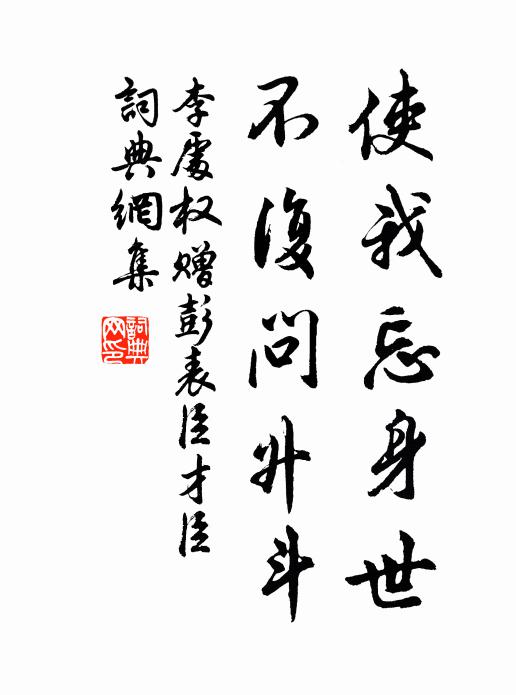 使我忘身世
不復問升斗
李處权赠彭表臣才臣
詞典網集
詞典
网印